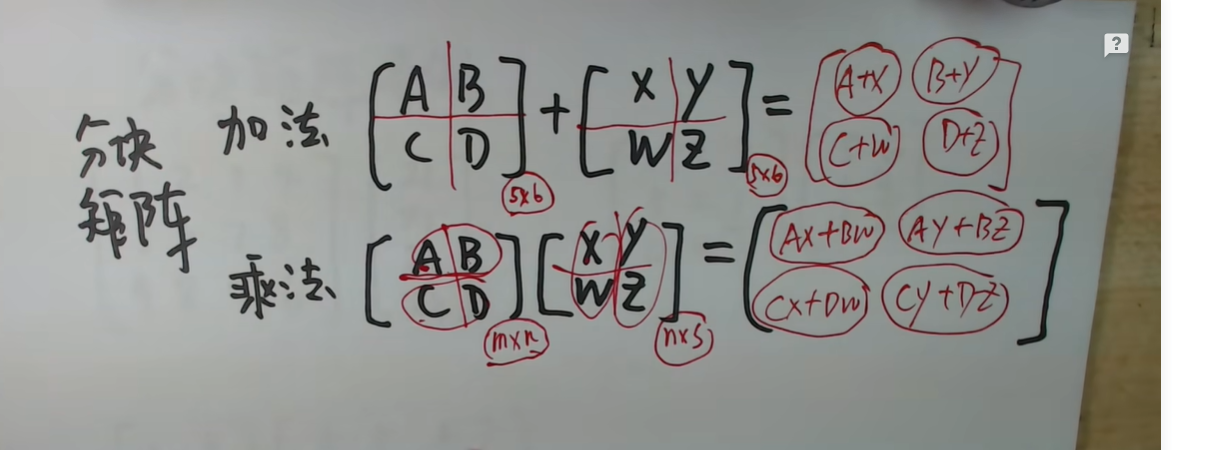 分块矩阵
加法 [A B; C D]5×6 + [X Y; W Z]5×6 = [A+X B+Y; C+W D+Z]
乘法 [A B; C D]m×n [X Y; W Z]n×s = [AX+BW AY+BZ; CX+DW CY+DZ]
?